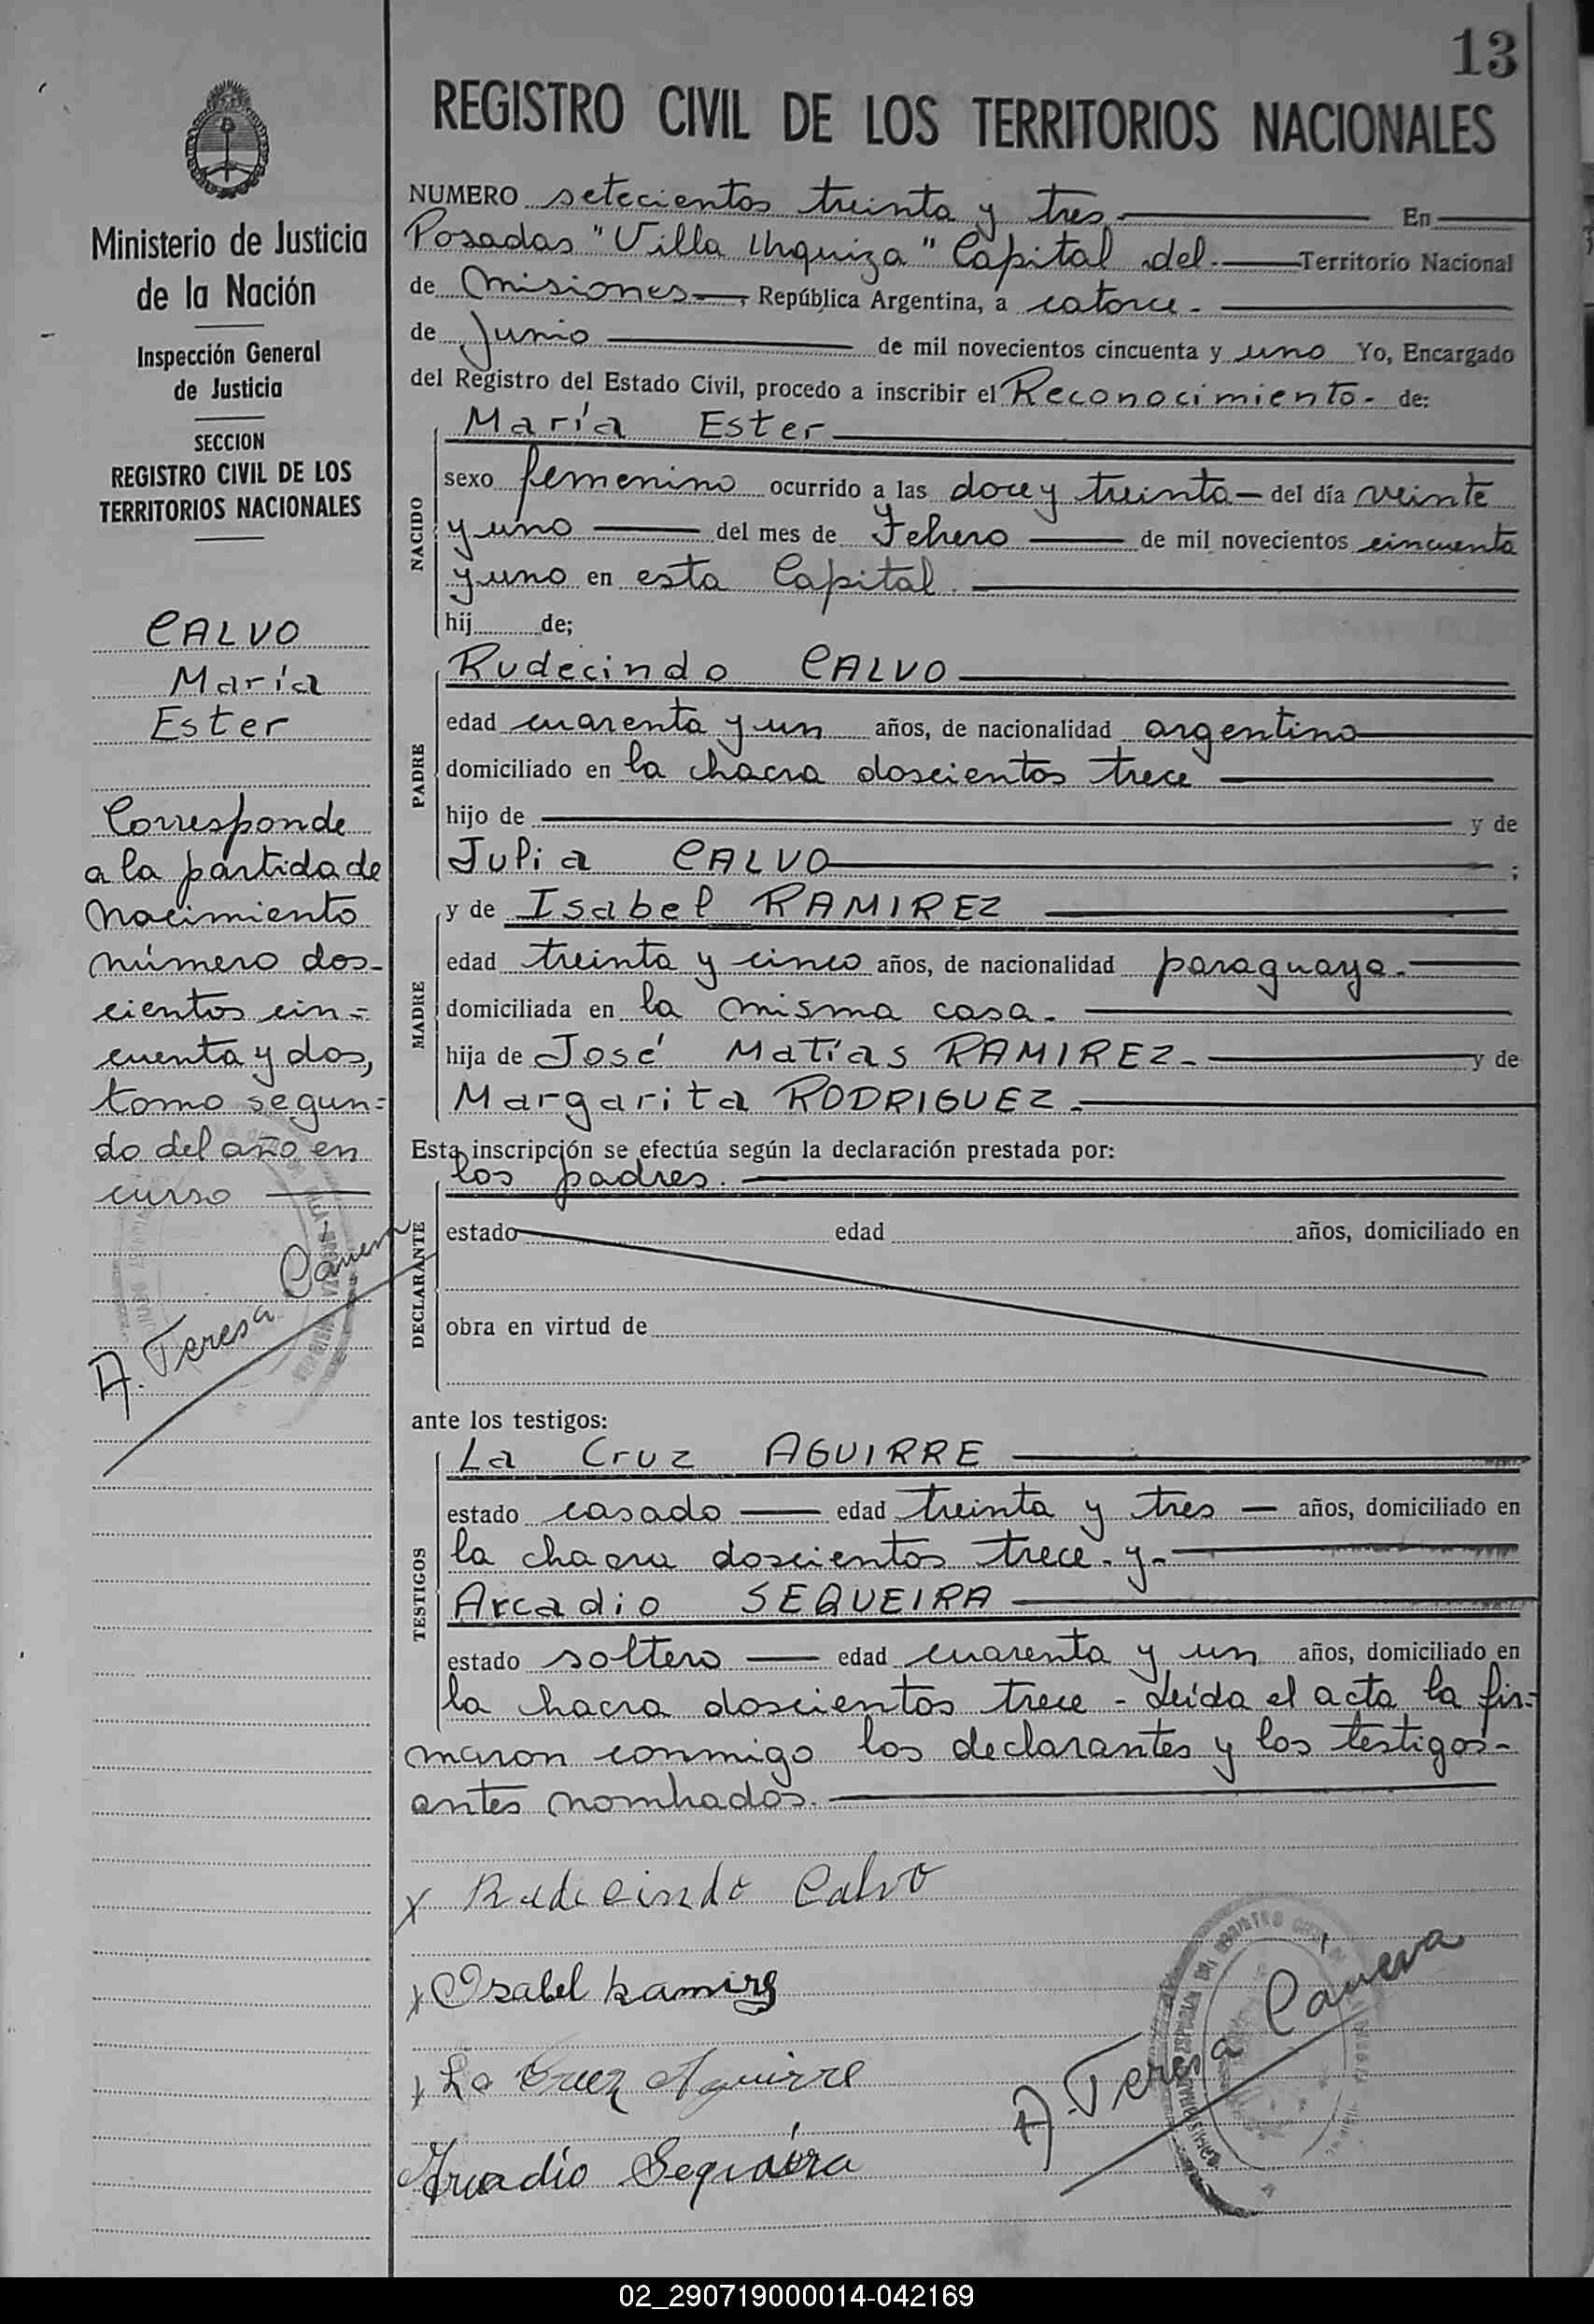 13
REGISTRO CIVIL DE LOS TERRITORIOS NACIONALES
Ministerio de Justicia
de la Nación
Inspección General
de Justicia
SECCION
REGISTRO CIVIL DE LOS
TERRITORIOS NACIONALES
CALVO
María
Ester
Corresponde
a la partida de
nacimiento
número dos-
cientos cin=
cuenta y dos,
tomo segun=
do del año en
curso
A. Teresa Cáneva
NUMERO setecientos treinta y tres En
Posadas "Villa Urquiza" Capital del Territorio Nacional
de Misiones, República Argentina, a catorce.
de Junio de mil novecientos cincuenta y uno Yo, Encargado
del Registro del Estado Civil, procedo a inscribir el Reconocimiento- de:
María Ester
NACIDO
sexo femenino ocurrido a las doce y treinta del día veinte
y uno del mes de Febrero de mil novecientos cincuenta
y uno en esta Capital.
hij de;
PADRE
Rudecindo CALVO
edad cuarenta y un años, de nacionalidad argentino
domiciliado en la chacra doscientos trece
hijo de y de
Julia CALVO ;
MADRE
y de Isabel RAMIREZ
edad treinta y cinco años, de nacionalidad paraguaya.
domiciliada en la misma casa.
hija de José Matías RAMIREZ- y de
Margarita RODRIGUEZ.
Esta inscripción se efectúa según la declaración prestada por:
los padres.
DECLARANTE
estado edad años, domiciliado en
obra en virtud de
ante los testigos:
TESTIGOS
La Cruz AGUIRRE
estado casado edad treinta y tres años, domiciliado en
la chacra doscientos trece. y-
Arcadio SEQUEIRA
estado soltero edad cuarenta y un años, domiciliado en
la chacra doscientos trece - Leída el acta la fir=
maron conmigo los declarantes y los testigos-
antes nombrados.
x Rudecindo Calvo
x Isabel Ramires
x La Cruz Aguirre
Arcadio Sequeira
A. Teresa Cáneva
02_290719000014-042169